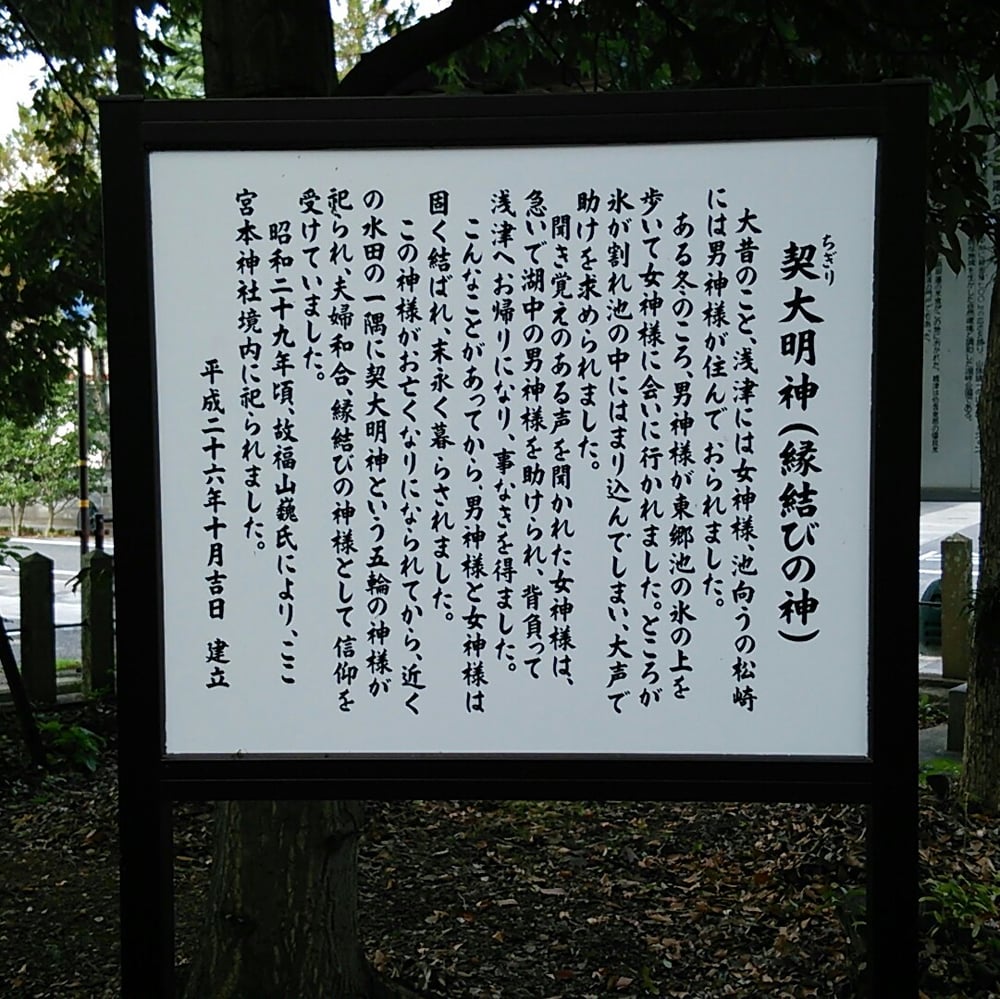 ちぎり
契大明神(縁結びの神)
大昔のこと、浅津には女神様、池向うの松崎
には男神様が住んでおられました。
ある冬のころ、男神様が東郷池の氷の上を
歩いて女神様に会いに行かれました。ところが
氷が割れ池の中にはまり込んでしまい、大声で
助けを求められました。
聞き覚えのある声を聞かれた女神様は、
急いで湖中の男神様を助けられ、背負って
浅津へお帰りになり、事なきを得ました。
こんなことがあってから、男神様と女神様は
固く結ばれ、末永く暮らされました。
この神様がお亡くなりになられてから、近く
の水田の一隅に契大明神という五輪の神様が
祀られ、夫婦和合、縁結びの神様として信仰を
受けていました。
昭和二十九年頃、故福山巍氏により、ここ
宮本神社境内に祀られました。
平成二十六年十月吉日 建立